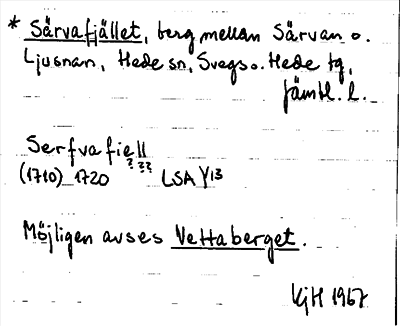 * Särvafjället, berg mellan Särvan o.
Ljusnan, Hede sn, Svegs o. Hede tg,
Jämtl. l.
Serfvafiell
? ??
(1710) 1720 LSA Y13
Möjligen avses Vettaberget.
KjH 1967